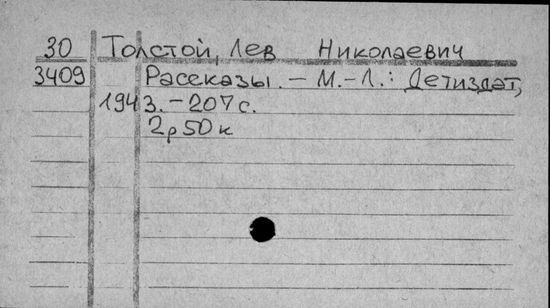 30 Толстой, Лев Николаевич
3409 Рассказы. – М.-Л.: Детиздат,
1943. – 207 с.
2р50к